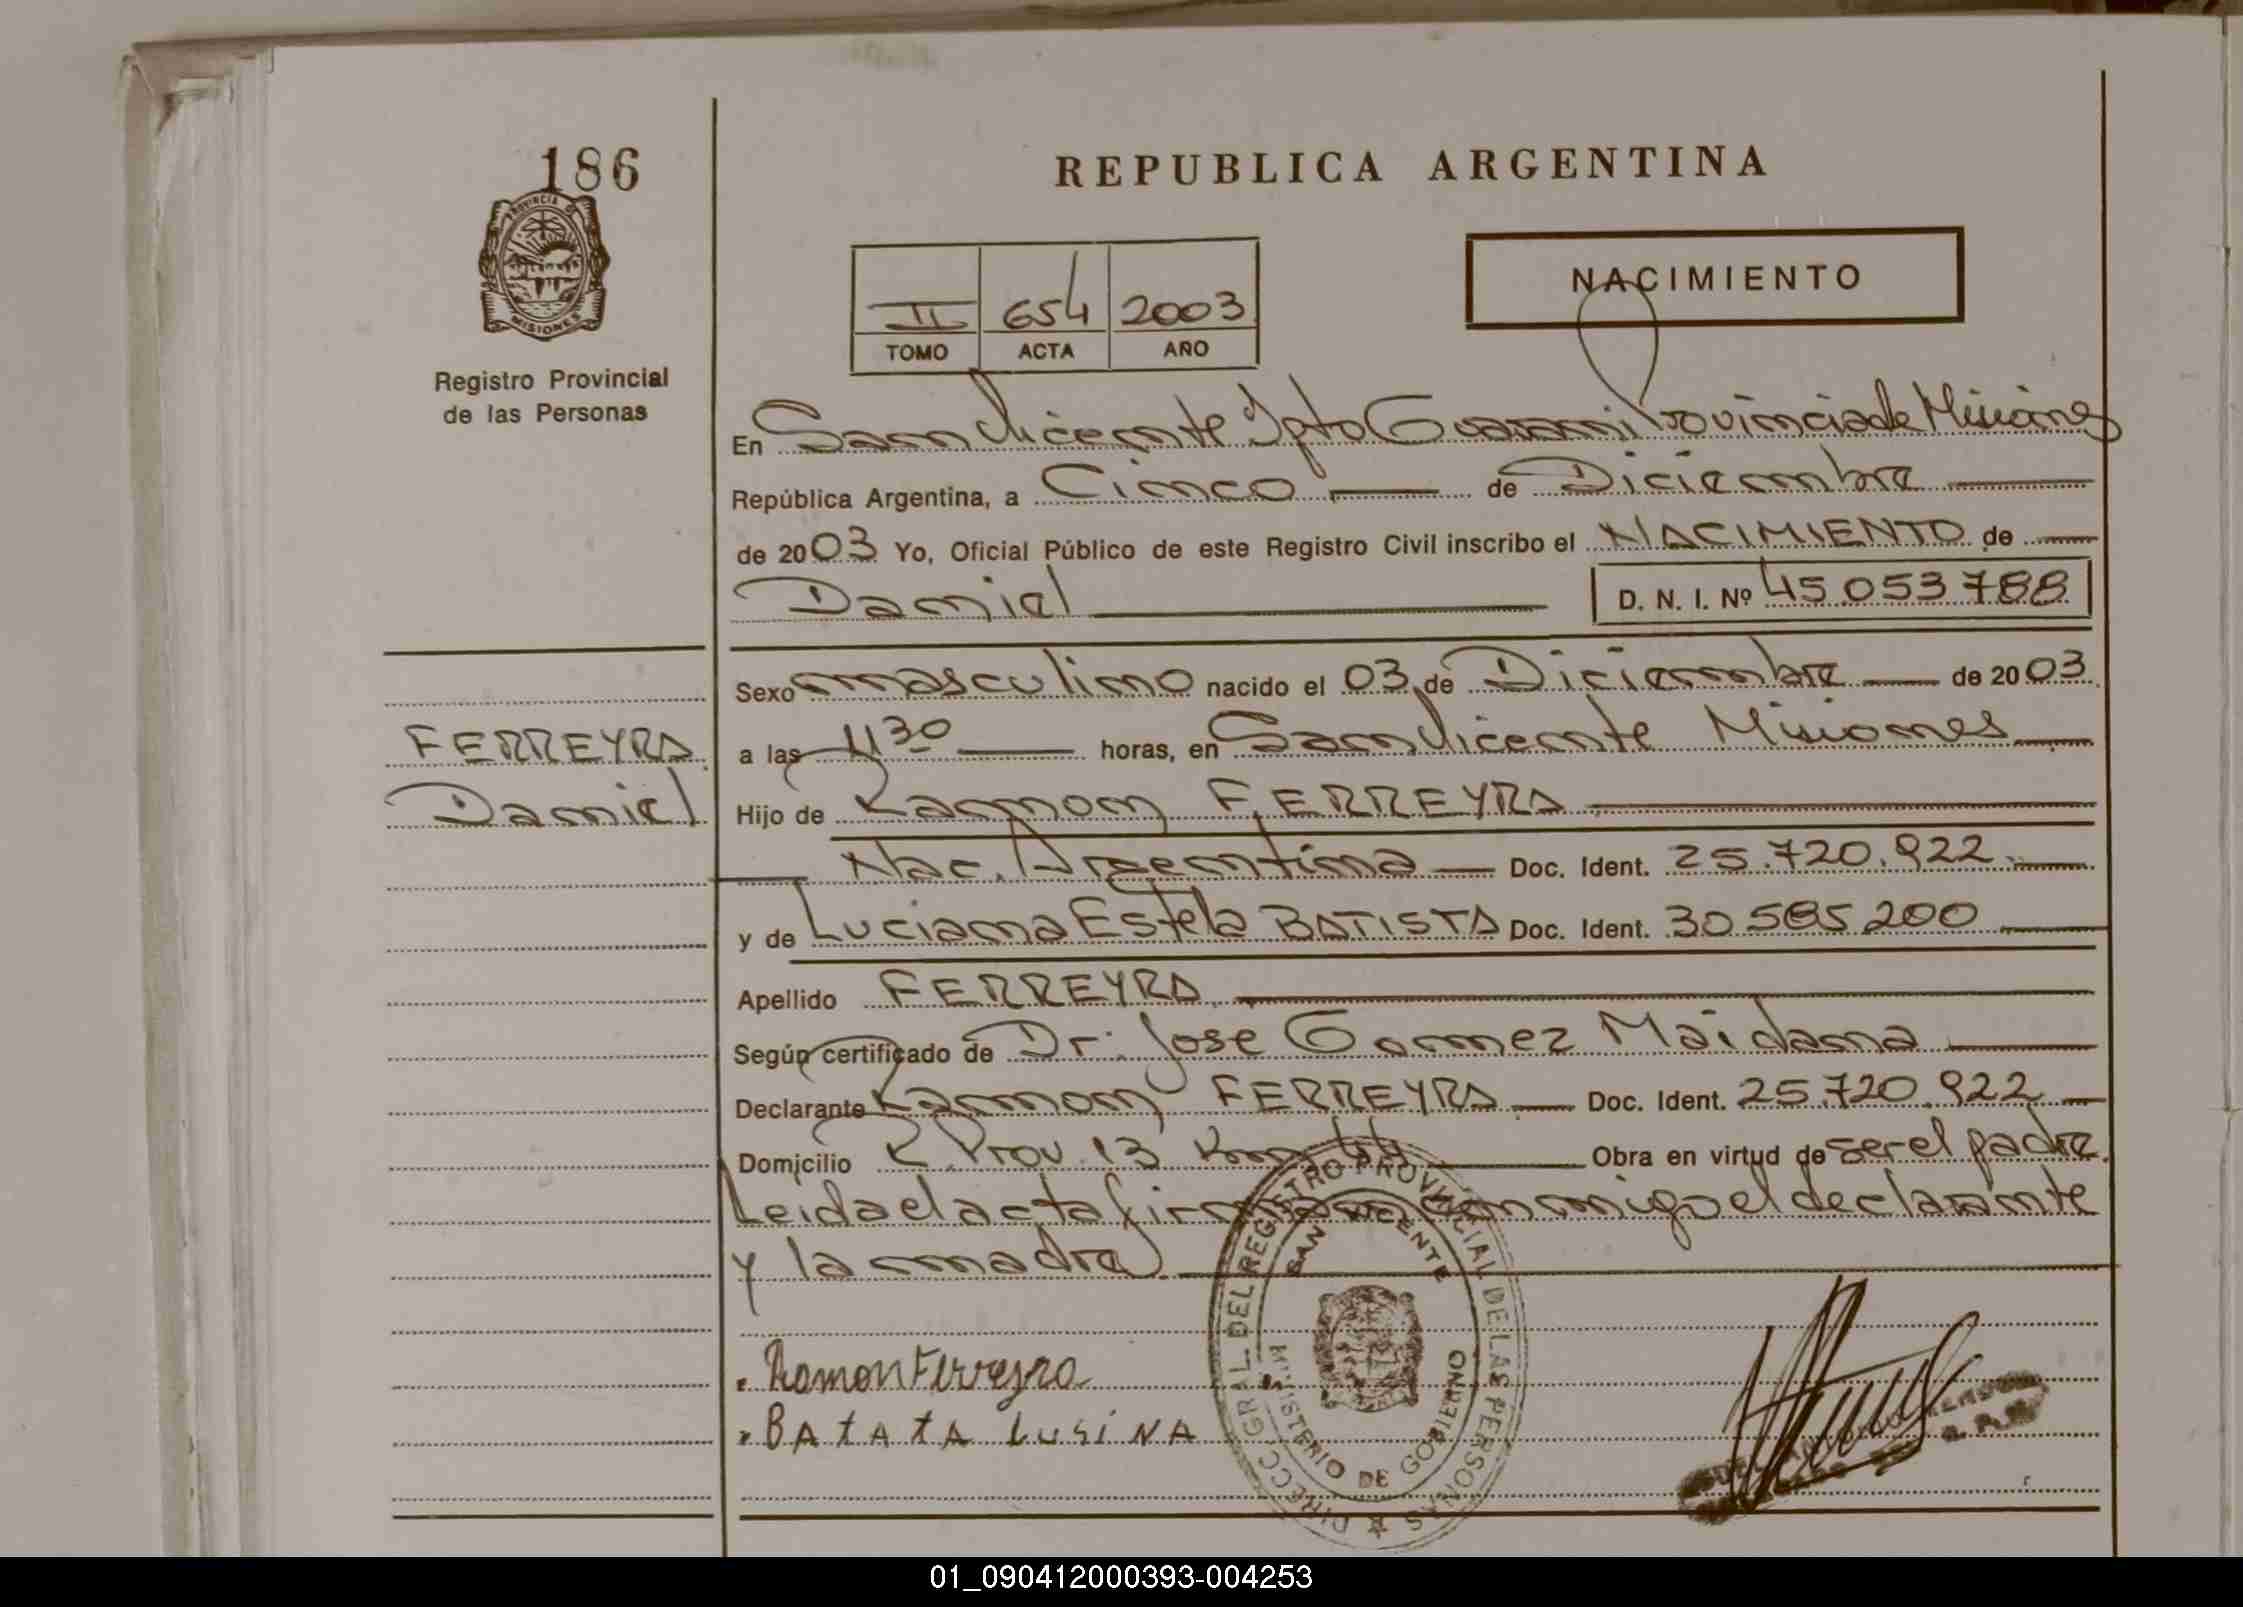 186
REPUBLICA ARGENTINA
PROVINCIA DE
MISIONES
Registro Provincial
de las Personas
II 654 2003
TOMO ACTA AÑO
NACIMIENTO
En San Vicente Dpto Guarani Provincia de Misiones
República Argentina, a Cinco de Diciembre
de 2003 Yo, Oficial Público de este Registro Civil inscribo el NACIMIENTO de
Daniel D. N. I. Nº 45.053.788
Sexo masculino nacido el 03 de Diciembre de 2003
FERREYRA a las 11 30 horas, en San Vicente Misiones
Daniel Hijo de Ramon FERREYRA
Nac. Argentina Doc. Ident. 25.720.922
y de Luciana Estela BATISTA Doc. Ident. 30.585.200
Apellido FERREYRA
Según certificado de Dr. Jose Gomez Maidana
Declarante Ramon FERREYRA Doc. Ident. 25.720.922
Domicilio R. Prov. 13 Km Obra en virtud de ser el padre.
Leida el acta firman conmigo el declarante
y la madre
DIRECC. GRAL. DEL REGISTRO PROVINCIAL DE LAS PERSONAS
SAN VICENTE
MINISTERIO DE GOBIERNO
Ramon Ferreyra
BATATA LUSINA
01_090412000393-004253